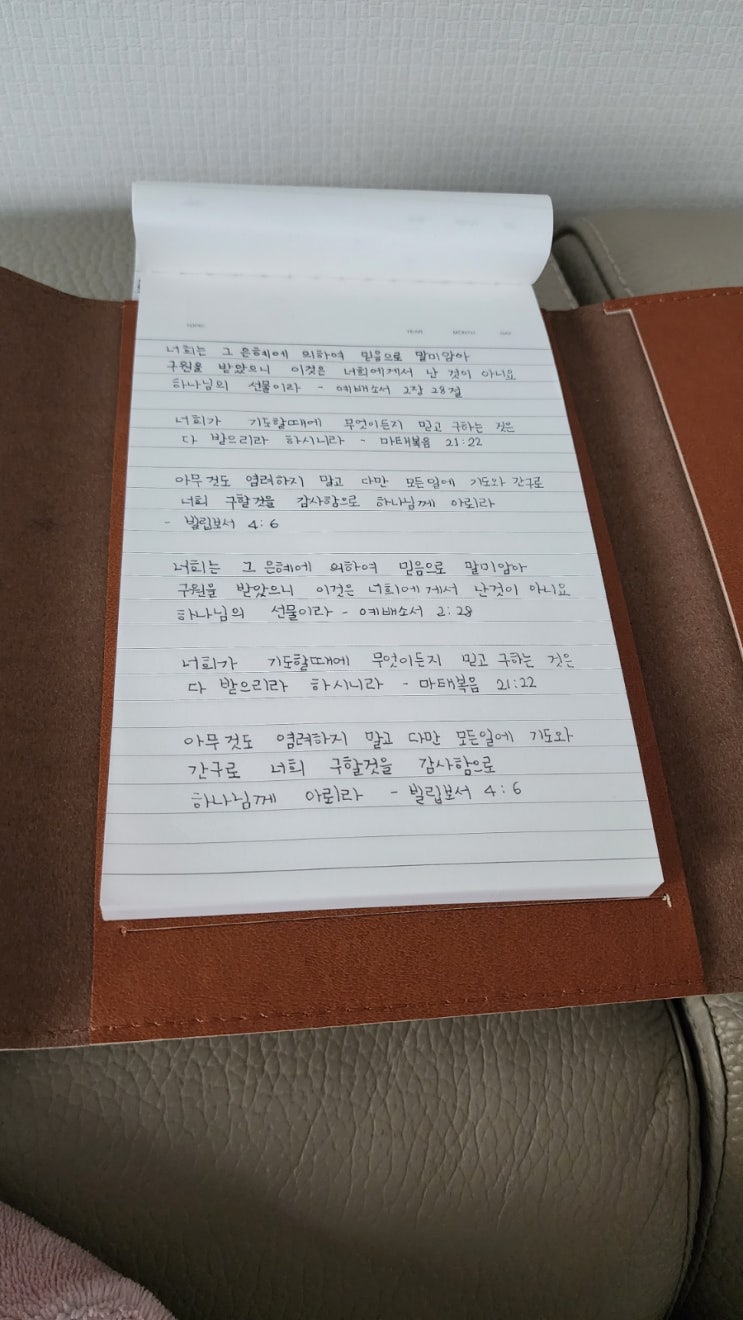 TOPIC YEAR MONTH DAY
너희는 그 은혜에 의하여 믿음으로 말미암아
구원을 받았으니 이것은 너희에게서 난 것이 아니요
하나님의 선물이라 - 에배소서 2장 28절
너희가 기도할때에 무엇이든지 믿고 구하는 것은
다 받으리라 하시니라 - 마태복음 21:22
아무것도 염려하지 말고 다만 모든일에 기도와 간구로
너희 구할것을 감사함으로 하나님께 아뢰라
- 빌립보서 4:6
너희는 그 은혜에 의하여 믿음으로 말미암아
구원을 받았으니 이것은 너희에게서 난것이 아니요
하나님의 선물이라 - 에배소서 2:28
너희가 기도할때에 무엇이든지 믿고 구하는 것은
다 받으리라 하시니라 - 마태복음 21:22
아무것도 염려하지 말고 다만 모든일에 기도와
간구로 너희 구할것을 감사함으로
하나님께 아뢰라 - 빌립보서 4:6